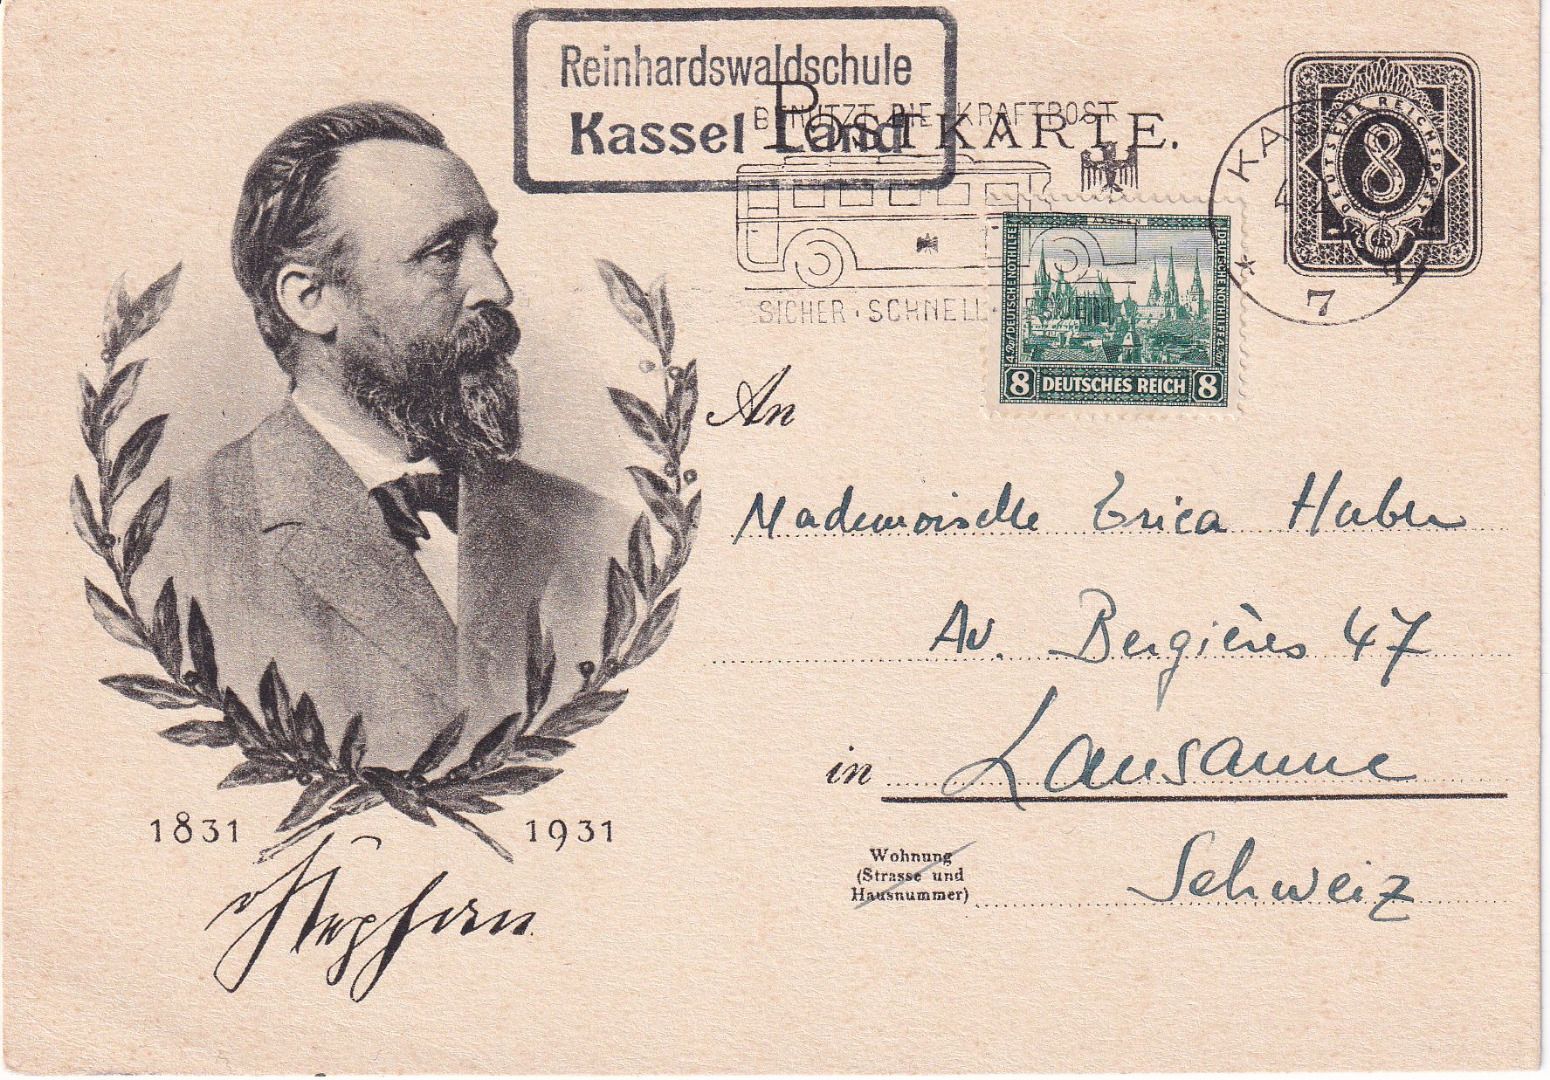 Reinhardswaldschule
Kassel Land
POSTKARTE.
BENUTZT DIE KRAFTPOST
SICHER · SCHNELL ·
DEUTSCHE REICHSPOST
8
KA
7
DEUTSCHE NOTHILFE
DEUTSCHE NOTHILFE
8 DEUTSCHES REICH 8
An
Mademoiselle Erica Huber
Av. Bergières 47
in Lausanne
Wohnung
(Strasse und
Hausnummer)
Schweiz
1831 1931
Stephan